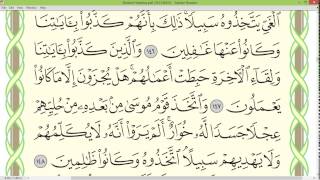 ٱلْغَىِّ يَتَّخِذُوهُ سَبِيلًا ۚ ذَٰلِكَ بِأَنَّهُمْ كَذَّبُوا۟ بِـَٔايَـٰتِنَا
وَكَانُوا۟ عَنْهَا غَـٰفِلِينَ ١٤٦ وَٱلَّذِينَ كَذَّبُوا۟ بِـَٔايَـٰتِنَا
وَلِقَآءِ ٱلْـَٔاخِرَةِ حَبِطَتْ أَعْمَـٰلُهُمْ ۚ هَلْ يُجْزَوْنَ إِلَّا مَا كَانُوا۟
يَعْمَلُونَ ١٤٧ وَٱتَّخَذَ قَوْمُ مُوسَىٰ مِنۢ بَعْدِهِۦ مِنْ حُلِيِّهِمْ
عِجْلًا جَسَدًا لَّهُۥ خُوَارٌ ۚ أَلَمْ يَرَوْا۟ أَنَّهُۥ لَا يُكَلِّمُهُمْ
وَلَا يَهْدِيهِمْ سَبِيلًا ۘ ٱتَّخَذُوهُ وَكَانُوا۟ ظَـٰلِمِينَ ١٤٨